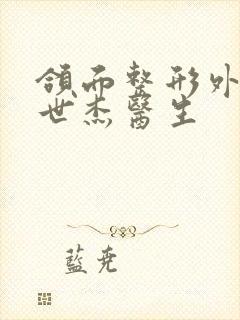 領而整形外
世杰醫生
藍堯